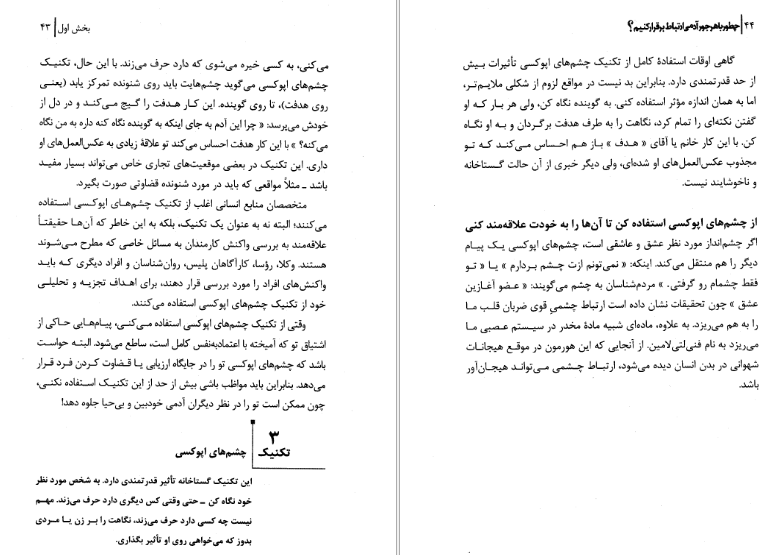 بخش اول | ۴۳
می‌کنی، به کسی خیره می‌شوی که دارد حرف می‌زند. با این حال، تکنیک
چشم‌های اپوکسی می‌گوید چشم‌هایت باید روی شنونده تمرکز یابد (یعنی
روی هدفت)، تا روی گوینده. این کار هدفت را گیج می‌کند و در دل از
خودش می‌پرسد: « چرا این آدم به جای اینکه به گوینده نگاه کنه داره به من نگاه
می‌کنه؟ » با این کار هدفت احساس می‌کند تو علاقهٔ زیادی به عکس‌العمل‌های او
داری. این تکنیک در بعضی موقعیت‌های تجاری خاص می‌تواند بسیار مفید
باشد ـ مثلاً مواقعی که باید در مورد شنونده قضاوتی صورت بگیرد.
متخصصان منابع انسانی اغلب از تکنیک چشم‌های اپوکسی استفاده
می‌کنند؛ البته نه به عنوان یک تکنیک، بلکه به این خاطر که آن‌ها حقیقتاً
علاقه‌مند به بررسی واکنش کارمندان به مسائل خاصی که مطرح می‌شوند
هستند. وکلا، رؤسا، کارآگاهان پلیس، روان‌شناسان و افراد دیگری که باید
واکنش‌های افراد را مورد بررسی قرار دهند، برای اهداف تجزیه و تحلیلی
خود از تکنیک چشم‌های اپوکسی استفاده می‌کنند.
وقتی از تکنیک چشم‌های اپوکسی استفاده می‌کنی، پیام‌هایی حاکی از
اشتیاق تو که آمیخته با اعتمادبه‌نفس کامل است، ساطع می‌شود. البته حواست
باشد که چشم‌های اپوکسی تو را در جایگاه ارزیابی یا قضاوت کردن فرد قرار
می‌دهد. بنابراین باید مواظب باشی بیش از حد از این تکنیک استفاده نکنی،
چون ممکن است تو را در نظر دیگران آدمی خودبین و بی‌حیا جلوه دهد!
۳
تکنیک چشم‌های اپوکسی
این تکنیک گستاخانه تأثیر قدرتمندی دارد. به شخص مورد نظر
خود نگاه کن ـ حتی وقتی کس دیگری دارد حرف می‌زند. مهم
نیست چه کسی دارد حرف می‌زند، نگاهت را بر زن یا مردی
بدوز که می‌خواهی روی او تأثیر بگذاری.
۴۴ | چطور با هر جور آدمی ارتباط برقرار کنیم؟
گاهی اوقات استفادهٔ کامل از تکنیک چشم‌های اپوکسی تأثیرات بیش
از حد قدرتمندی دارد. بنابراین بد نیست در مواقع لزوم از شکلی ملایم‌تر،
اما به همان اندازه مؤثر استفاده کنی. به گوینده نگاه کن، ولی هر بار که او
گفتن نکته‌ای را تمام کرد، نگاهت را به طرف هدفت برگردان و به او نگاه
کن. با این کار خانم یا آقای « هدف » باز هم احساس می‌کند که تو
مجذوب عکس‌العمل‌های او شده‌ای، ولی دیگر خبری از آن حالت گستاخانه
و ناخوشایند نیست.
از چشم‌های اپوکسی استفاده کن تا آن‌ها را به خودت علاقه‌مند کنی
اگر چشم‌انداز مورد نظر عشق و عاشقی است، چشم‌های اپوکسی یک پیام
دیگر را هم منتقل می‌کند. اینکه: « نمی‌تونم ازت چشم بردارم » یا « تو
فقط چشمام رو گرفتی. » مردم‌شناسان به چشم می‌گویند: « عضو آغازین
عشق » چون تحقیقات نشان داده است ارتباط چشمیِ قوی ضربان قلب ما
را به هم می‌ریزد. به علاوه، ماده‌ای شبیه مادهٔ مخدر در سیستم عصبی ما
می‌ریزد به نام فنی‌لتی‌لامین. از آنجایی که این هورمون در موقع هیجانات
شهوانی در بدن انسان دیده می‌شود، ارتباط چشمی می‌تواند هیجان‌آور
باشد.